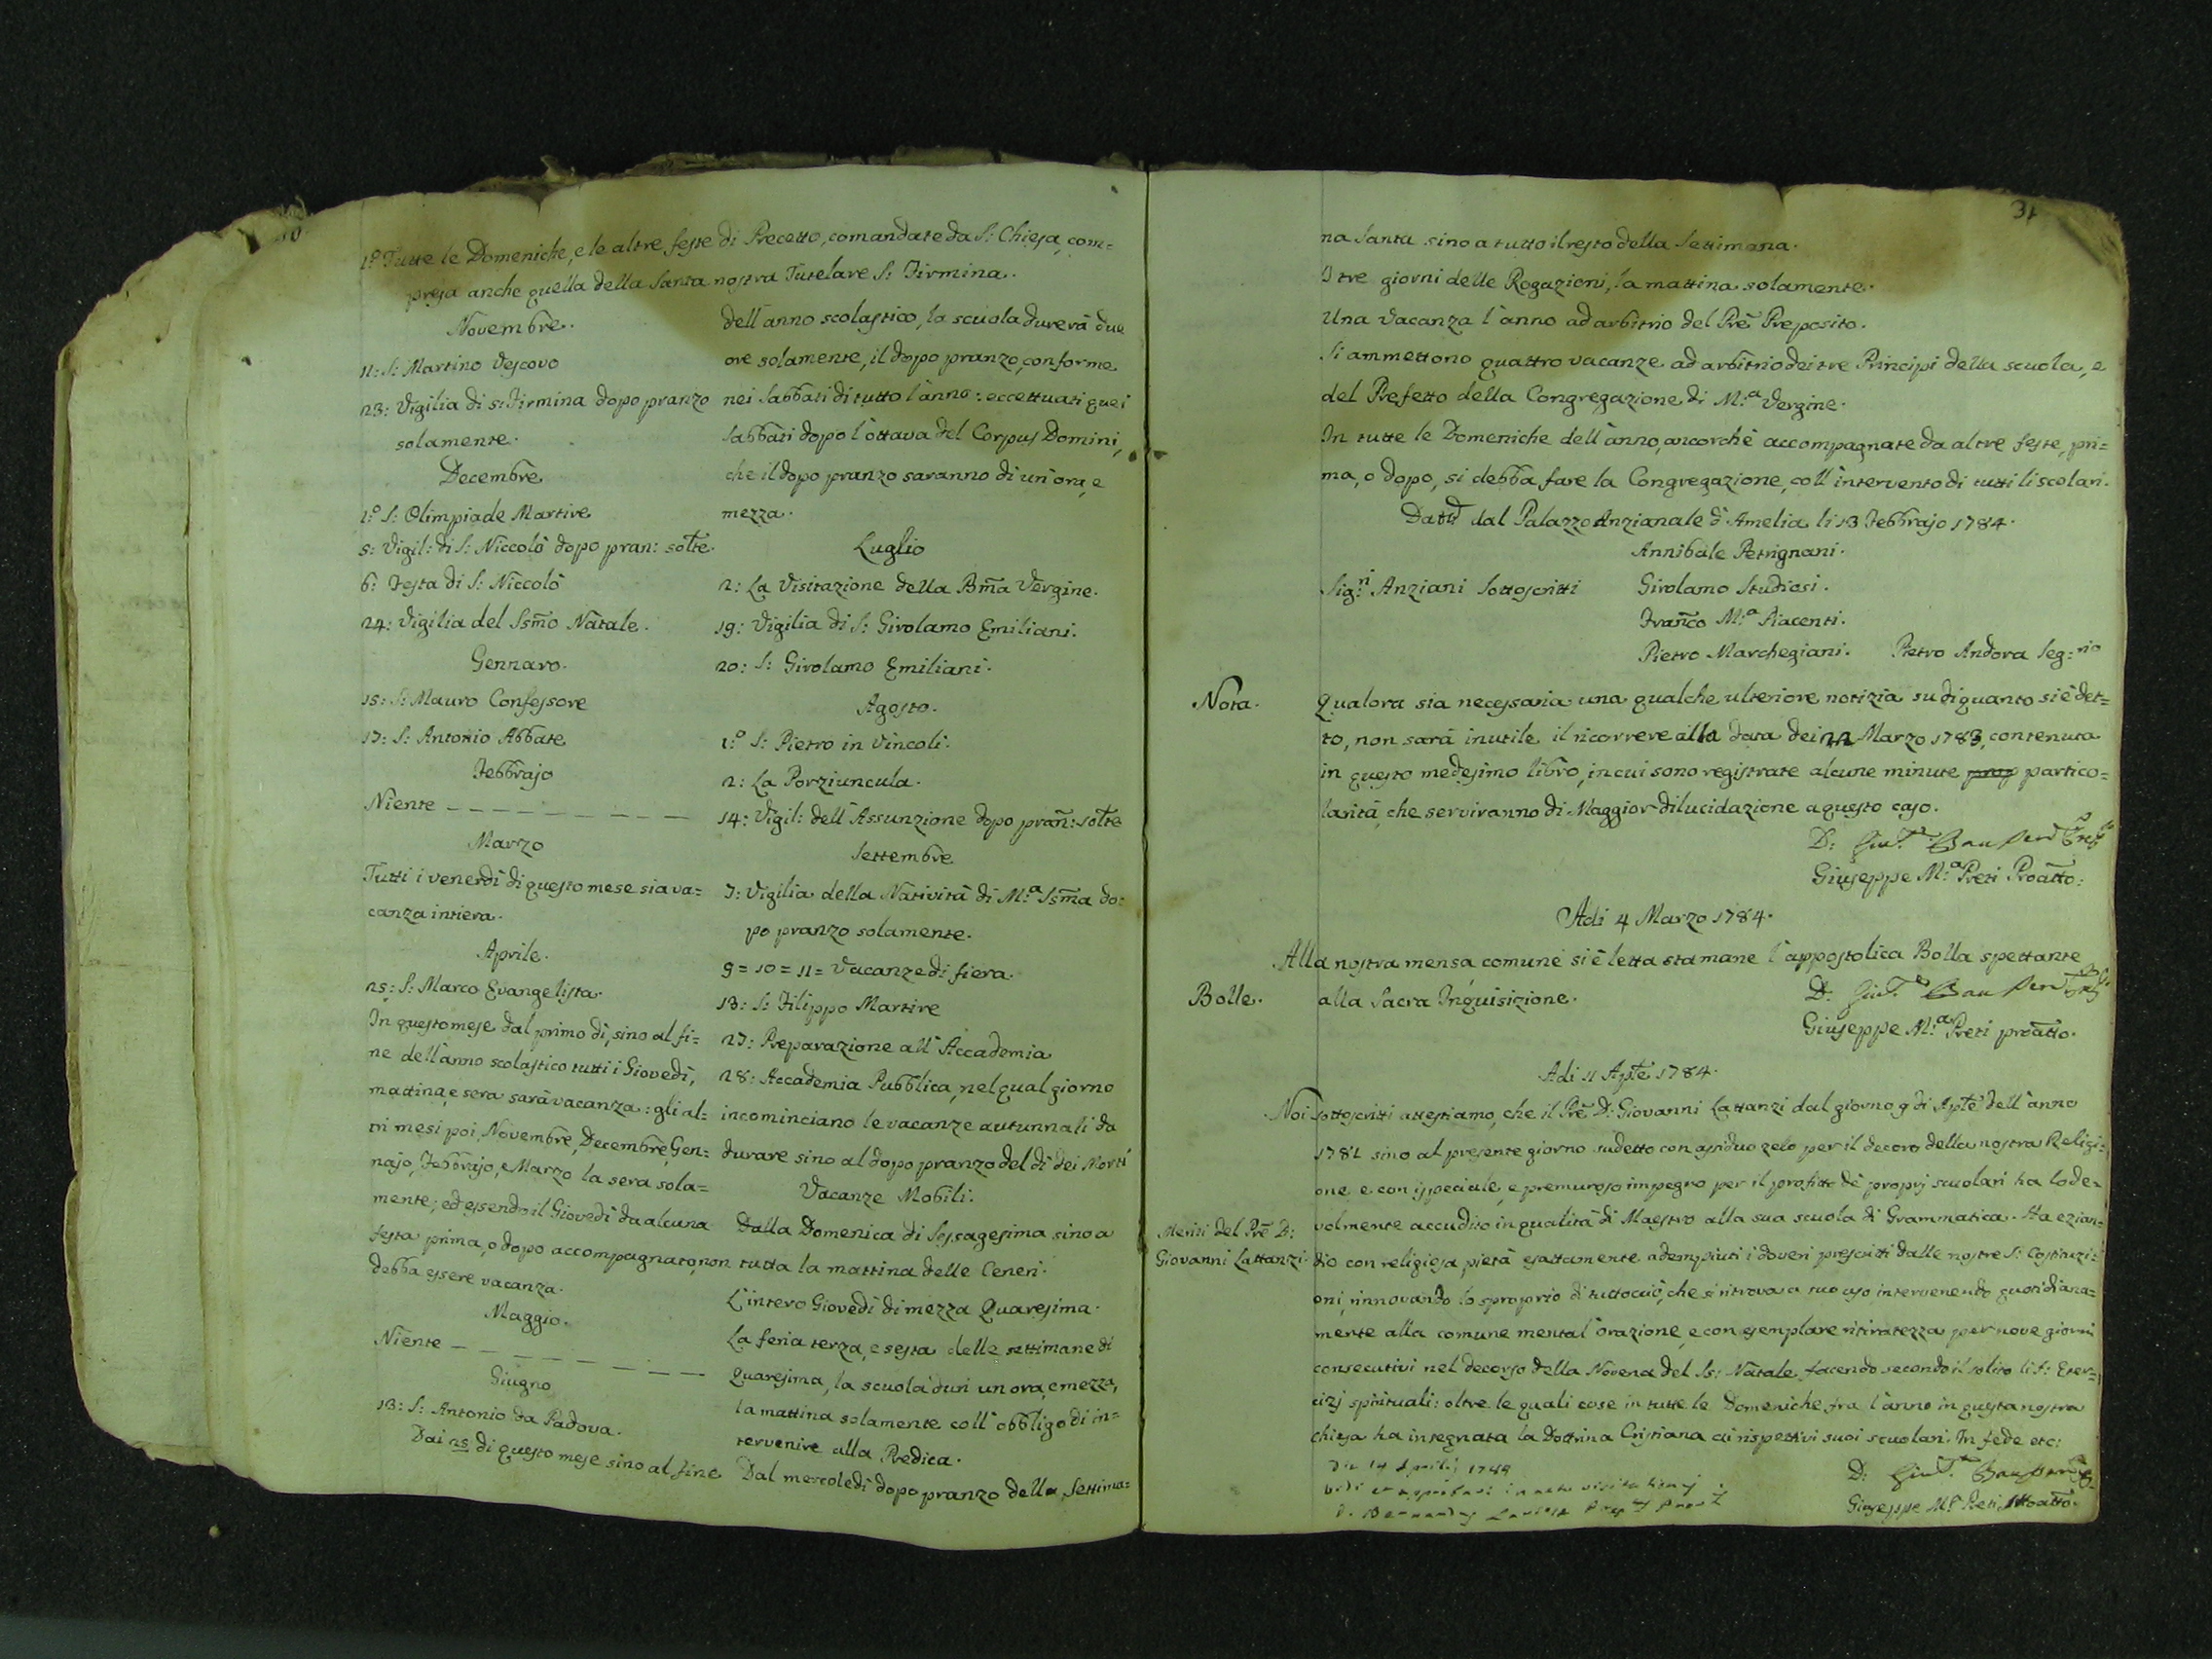 1.º Tutte le Domeniche, e le altre feste di Precetto, comandate da S: Chiesa, com=
presa anche quella della Santa nostra Tutelare S: Firmina.
Novembre.
11: S: Martino Vescovo
23: Vigilia di S: Firmina dopo pranzo
solamente.
Decembre
1.º S: Olimpiade Martire
5: Vigil: di S: Niccolò dopo pran: solte.
6: Festa di S: Niccolò
24: Vigilia del Ssmo Natale.
Gennaro.
15: S: Mauro Confessore
17: S: Antonio Abbate
Febbrajo
Niente
Marzo
Tutti i venerdì di questo mese sia va=
canza intiera.
Aprile.
25: S: Marco Evangelista.
In questo mese dal primo dì, sino al fi=
ne dell'anno scolastico tutti i Giovedì,
mattina, e sera sarà vacanza: gli al=
tri mesi poi, Novembre, Decembre, Gen=
najo, Febbrajo, e Marzo la sera sola=
mente; ed essendo il Giovedì da alcuna
festa prima, o dopo accompagnato, non
debba essere vacanza.
Maggio.
Niente
Giugno
13: S: Antonio da Padova.
Dai 25 di questo mese sino al fine
dell'anno scolastico, la scuola durerà due
ore solamente, il dopo pranzo, conforme
nei Sabbati di tutto l'anno: eccettuati quei
Sabbati dopo l'ottava del Corpus Domini,
che il dopo pranzo saranno di un'ora, e
mezza.
Luglio
2: La Visitazione della Bma Vergine.
19: Vigilia di S: Girolamo Emiliani.
20: S: Girolamo Emiliani.
Agosto.
1.º S: Pietro in Vincoli.
2: La Porziuncula.
14: Vigil: dell'Assunzione dopo pran: solte
Settembre
7: Vigilia della Natività di M.a Ssma do=
po pranzo solamente.
9 = 10 = 11 = Vacanze di fiera.
13: S: Filippo Martire
27: Preparazione all'Accademia
28: Accademia Pubblica, nel qual giorno
incominciano le vacanze autunnali da
durare sino al dopo pranzo del dì dei Morti
Vacanze Mobili.
Dalla Domenica di Sessagesima sino a
tutta la mattina delle Ceneri.
L'intero Giovedì di mezza Quaresima.
La feria terza, e sesta delle settimane di
Quaresima, la scuola duri un ora, e mezza,
la mattina solamente coll'obbligo di in=
tervenire alla Predica.
Dal mercoledì dopo pranzo della Settima=
31
na Santa sino a tutto il resto della Settimana.
I tre giorni delle Rogazioni, la mattina solamente.
Una Vacanza l'anno ad arbitrio del Pre Preposito.
Si ammettono quattro vacanze ad arbitrio dei tre Principi della scuola, e
del Prefetto della Congregazione di M.a Vergine.
In tutte le Domeniche dell'anno, ancorchè accompagnate da altre feste, pri=
ma, o dopo, si debba fare la Congregazione, coll'intervento di tutti li scolari.
dal Palazzo Anzianale d'Amelia li 13 Febbrajo 1784.
Annibale Petrignani.
Sig.ri Anziani Sottoscritti Girolamo Studiosi.
Franco M.a Piacenti.
Pietro Marchegiani. Pietro Andora Seg:rio
Nota. Qualora sia necessaria una qualche ulteriore notizia su di quanto si è det=
to, non sarà inutile il ricorrere alla data dei 22 Marzo 1783, contenuta
in questo medesimo libro, in cui sono registrate alcune minute partico=
larità, che serviranno di Maggior dilucidazione a questo caso.
D:
Giuseppe M.a Preti Proatto:
Adi 4 Marzo 1784.
Alla nostra mensa comune si è letta stamane l'appostolica Bolla spettante
Bolle. alla Sacra Inquisizione.
D:
Giuseppe M.a Preti proatto.
Adi 11 Aple 1784.
Noi sottoscritti attestiamo, che il Pre D: Giovanni Lattanzi dal giorno 9 di Aple dell'anno
1781 sino al presente giorno sudetto con assiduo zelo per il decoro della nostra Religi=
one e con ispeciale, e premuroso impegno per il profitto de' proprj scuolari ha lode=
Meriti del Pre D:
Giovanni Lattanzi.
volmente accudito in qualità di Maestro alla sua scuola di Grammatica. Ha ezian=
dio con religiosa pietà esattamente adempiuti i doveri prescritti dalle nostre S: Costituzi=
oni, rinnovando lo sproprio di tuttociò, che si ritrova a suo uso intervenendo quotidiana=
mente alla comune mental'orazione, e con esemplare ritiratezza per nove giorni
consecutivi nel decorso della Novena del Ss: Natale, facendo secondo il solito li S: Eser=
cizj spirituali: oltre le quali cose in tutte le Domeniche fra l'anno in questa nostra
chiesa ha insegnata la Dottrina Cristiana ai rispettivi suoi scuolari. In fede etc:
Die 14 Aprilis 1784
Vidi et approbavi in actu visitationis
D.
D:
Giuseppe M.a Preti Attoatto.